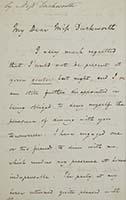 My Dear Miss Duckworth
I very much regretted
that I could not be present at
your          last night, and I
am still further disappointed in
being obliged to deny myself the
pleasure of dining with you
tomorrow. I have engaged one
or two friends to dine with me
which renders my presence at home
indispensable. The party at my
house returned quite pleased with